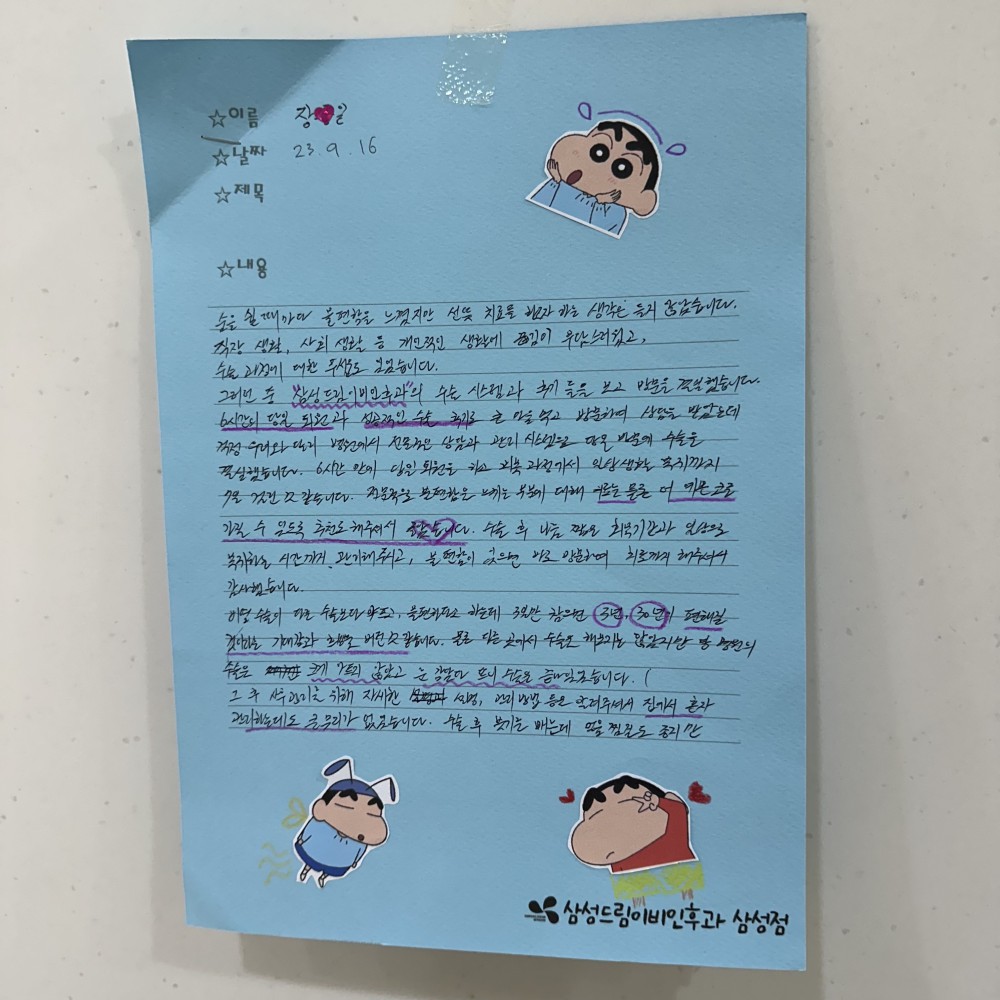 ☆이름 장♥일
☆날짜 23.9.16
☆제목
☆내용
숨을 쉴 때마다 불편함을 느꼈지만 선뜻 치료를 받자 하는 생각은 들지 않았습니다.
직장 생활, 사회 생활 등 개인적인 생활에 부담스러웠고,
수술 과정에 대한 무서움도 있었습니다.
그러던 중 "삼성드림이비인후과"의 수술 시스템과 후기 들을 보고 방문을 결심했습니다.
6시간의 당일 퇴원과 성공적인 수술 후기로 큰 맘을 먹고 방문하여 상담을 받았는데
걱정 우려와 달리 병원에서 전문적인 상담과 관리 시스템으로 당일 바로 수술을
결심했습니다. 6시간 만에 당일 퇴원을 하고 회복 과정에서 일상생활 복귀까지
걸린 것 같습니다. 불편함을 느끼는 부분에 대해 더 예쁜 코를
가질 수 있도록 추천도 해주셔서 수술 후 나름 짧은 회복기간과 일상으로
복귀하는 시간까지 관리해주시고, 불편함이 있으면 바로 방문하여 치료까지 해주셔서
감사했습니다.
수술이 다른 수술보다 아프고, 불편하다고 하는데 3일만 참으면 3년, 30년이 편해질
것이라는 기대감과 버틴 것 같습니다. 물론 다른 곳에서 수술은 해보지는 않았지만 병원의
수술은 크게 아프지 않았고 눈 감았다 뜨니 수술은 끝나있었습니다. (
그 후 사후관리를 위해 자세한 설명, 관리 방법 등을 알려주셔서 집에서 혼자
관리하는데도 큰 무리가 없었습니다. 수술 후 붓기를 빼는데 얼음 찜질도 좋지만
삼성드림이비인후과 삼성점